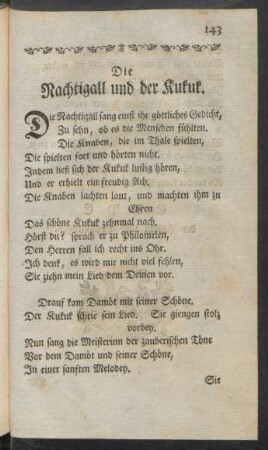 143
Die
Nachtigall und der Kukuk.
Die Nachtigall sang einst ihr göttliches Gedicht,
Zu sehn, ob es die Menschen fühlten.
Die Knaben, die im Thale spielten,
Die spielten fort und hörten nicht.
Indem ließ sich der Kukuk lustig hören,
Und er erhielt ein freudig Ach.
Die Knaben lachten laut, und machten ihm zu
Ehren
Das schöne Kukuk zehnmal nach.
Hörst du? sprach er zu Philomelen,
Den Herren fall ich recht ins Ohr.
Ich denk, es wird mir nicht viel fehlen,
Sie ziehn mein Lied dem Deinen vor.
Drauf kam Damöt mit seiner Schöne.
Der Kukuk schrie sein Lied. Sie giengen stolz
vorbey.
Nun sang die Meisterinn der zauberischen Töne
Vor dem Damöt und seiner Schöne,
In einer sanften Melodey.
Sie